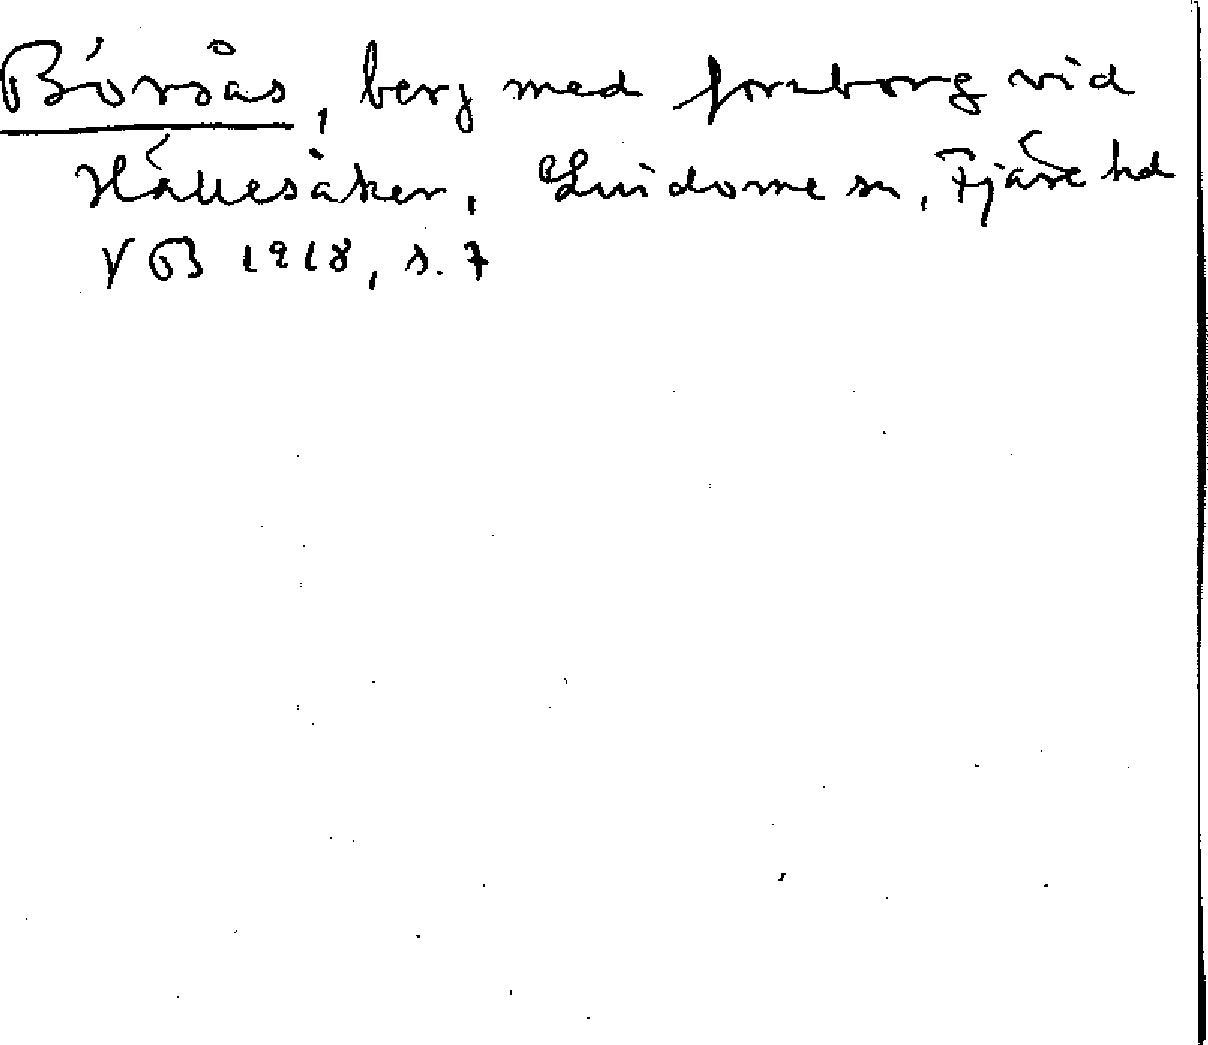 Börsås, berg med fornborg vid
Hällesåker, Lindome sn, Fjäre hd
VB 1918, s. 7